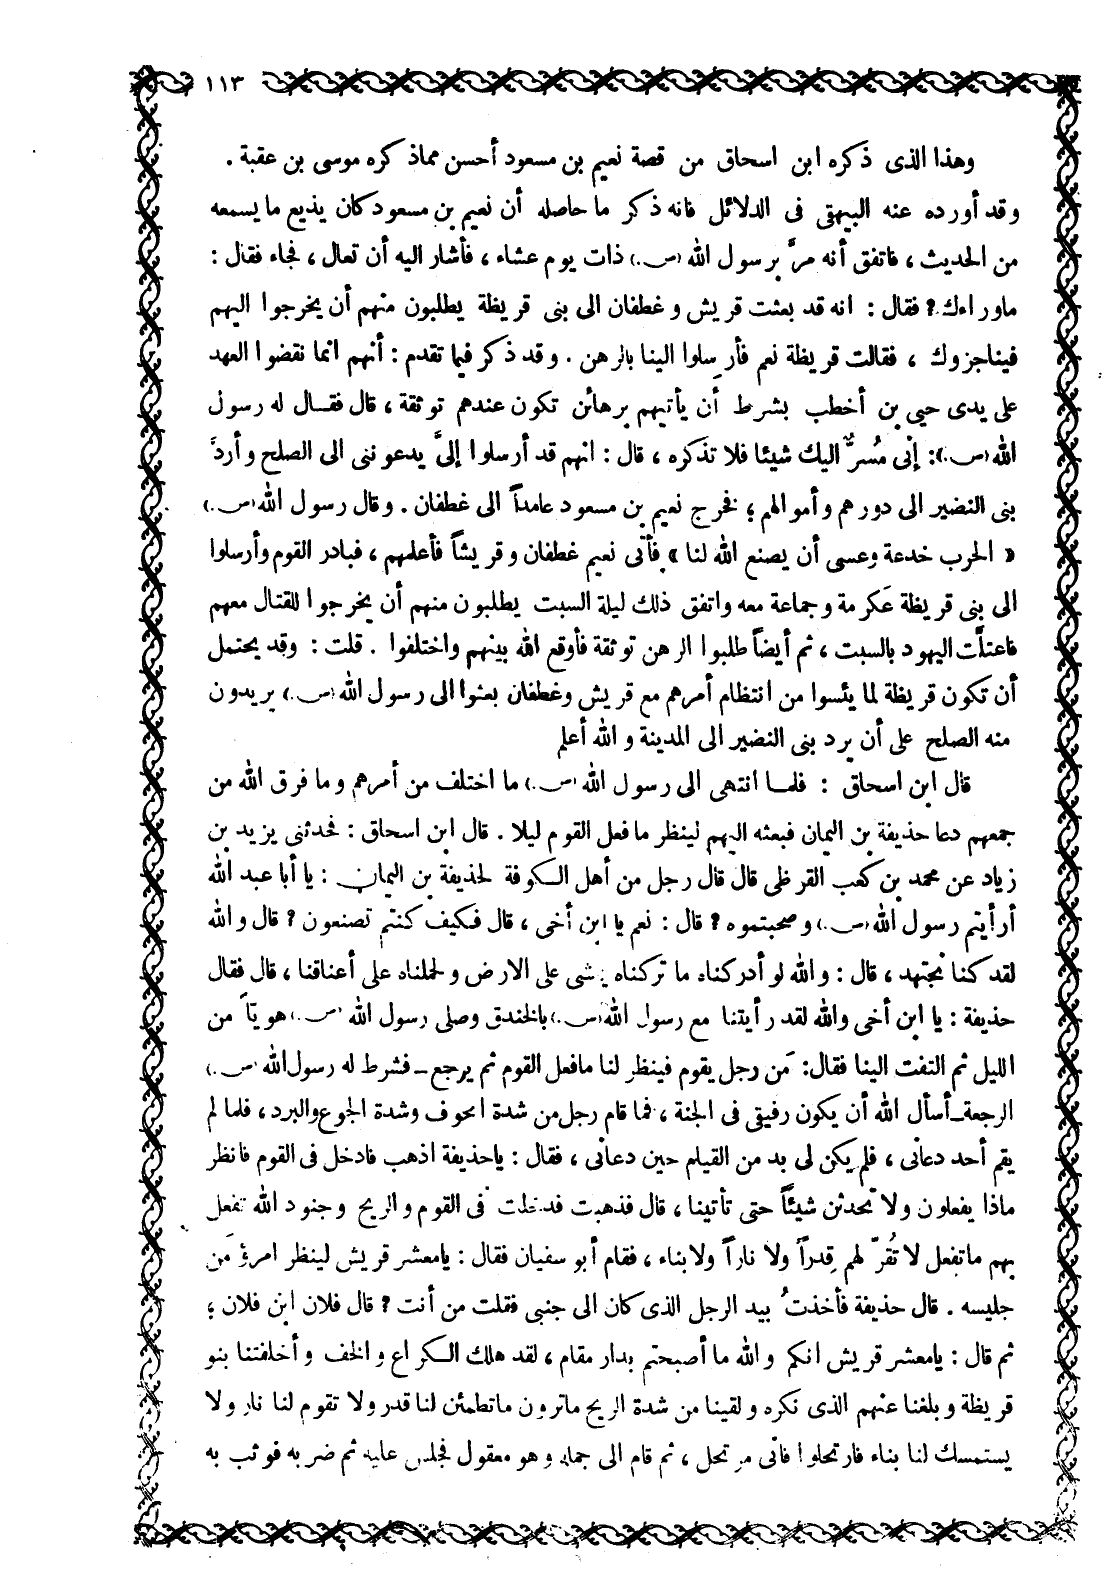 ١١٣
وهذا الذى ذكره ابن اسحاق من قصة نعيم بن مسعود أحسن مما ذكره موسى بن عقبة .
وقد أورده عنه البيهقى فى الدلائل فانه ذكر ما حاصله أن نعيم بن مسعود كان يذيع ما يسمعه
من الحديث ، فاتفق أنه مرَّ برسول الله (ص.) ذات يوم عشاء ، فأشار اليه أن تعال ، فجاء فقال :
ماوراءك ? فقال : انه قد بعثت قريش وغطفان الى بنى قريظة يطلبون منهم أن يخرجوا اليهم
فيناجزوك ، فقالت قريظة نعم فأرسلوا الينا بالرهن . وقد ذكر فيما تقدم : أنهم انما نقضوا العهد
على يدى حيى بن أخطب بشرط أن يأتيهم برهائن تكون عندهم توثقة ، قال فقال له رسول
الله (ص.): إنى مُسرٌّ اليك شيئا فلا تذكره ، قال : انهم قد أرسلوا إلىَّ يدعوننى الى الصلح وأردَّ
بنى النضير الى دورهم وأموالهم ؛ فخرج نعيم بن مسعود عامداً الى غطفان . وقال رسول الله (ص.)
« الحرب خدعة وعسى أن يصنع الله لنا » فأتى نعيم غطفان وقريشاً فأعلمهم ، فبادر القوم وأرسلوا
الى بنى قريظة عكرمة وجماعة معه واتفق ذلك ليلة السبت يطلبون منهم أن يخرجوا للقتال معهم
فاعتلَّت اليهود بالسبت ، ثم أيضاً طلبوا الرهن توثقة فأوقع الله بينهم واختلفوا . قلت : وقد يحتمل
أن تكون قريظة لما يئسوا من انتظام أمرهم مع قريش وغطفان بعثوا الى رسول الله (ص.) يريدون
منه الصلح على أن يرد بنى النضير الى المدينة والله أعلم
قال ابن اسحاق : فلما انتهى الى رسول الله (ص.) ما اختلف من أمرهم وما فرق الله من
جمعهم دعا حذيفة بن اليمان فبعثه اليهم لينظر ما فعل القوم ليلا . قال ابن اسحاق : فحدثنى يزيد بن
زياد عن محمد بن كعب القرظى قال قال رجل من أهل الكوفة لحذيفة بن اليمان : يا أبا عبد الله
أرأيتم رسول الله (ص.) وصحبتموه ? قال : نعم يا ابن أخى ، قال فكيف كنتم تصنعون ? قال والله
لقد كنا نجتهد ، قال : والله لو أدركناه ما تركناه يمشى على الارض ولحملناه على أعناقنا ، قال فقال
حذيفة : يا ابن أخى والله لقد رأيتنا مع رسول الله (ص.) بالخندق وصلى رسول الله (ص.) هويّاً من
الليل ثم التفت الينا فقال: مَن رجل يقوم فينظر لنا مافعل القوم ثم يرجع ــ فشرط له رسول الله (ص.)
الرجعة ــ أسأل الله أن يكون رفيقى فى الجنة ، فما قام رجل من شدة الخوف وشدة الجوع والبرد ، فلما لم
يقم أحد دعانى ، فلم يكن لى بد من القيام حين دعانى ، فقال : ياحذيفة اذهب فادخل فى القوم فانظر
ماذا يفعلون ولا تحدثن شيئاً حتى تأتينا ، قال فذهبت فدخلت فى القوم والريح وجنود الله تفعل
بهم ماتفعل لا تُقرّ لهم قِدراً ولا ناراً ولا بناء ، فقام أبو سفيان فقال : يامعشر قريش لينظر امرؤ مَن
جليسه . قال حذيفة فأخذتُ بيد الرجل الذى كان الى جنبى فقلت من أنت ? قال فلان ابن فلان ؛
ثم قال : يامعشر قريش انكم والله ما أصبحتم بدار مقام ، لقد هلك الكراع والخف وأخلفتنا بنو
قريظة وبلغنا عنهم الذى نكره ولقينا من شدة الريح ماترون ماتطمئن لنا قدر ولا تقوم لنا نار ولا
يستمسك لنا بناء فارتحلوا فانى مرتحل ، ثم قام الى جمله وهو معقول فجلس عليه ثم ضربه فوثب به